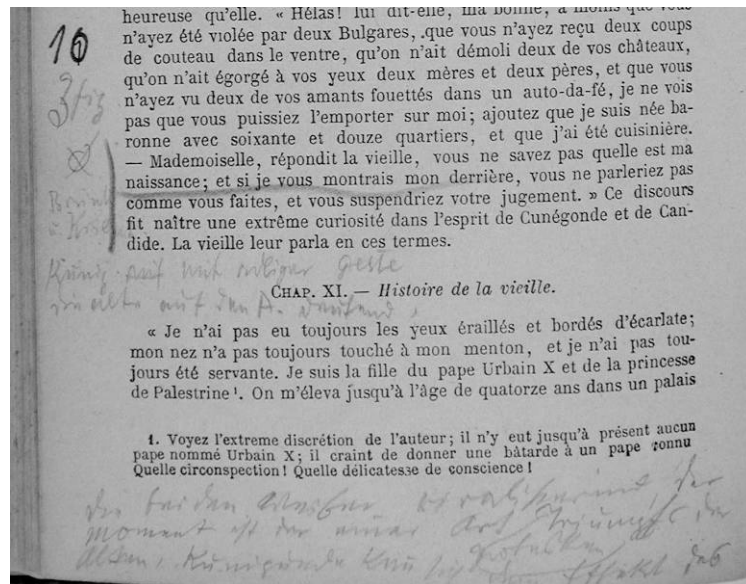 heureuse qu'elle. « Hélas! lui dit-elle, ma bonne, à moins que vous
n'ayez été violée par deux Bulgares, .que vous n'ayez reçu deux coups
de couteau dans le ventre, qu'on n'ait démoli deux de vos châteaux,
qu'on n'ait égorgé à vos yeux deux mères et deux pères, et que vous
n'ayez vu deux de vos amants fouettés dans un auto-da-fé, je ne vois
pas que vous puissiez l'emporter sur moi; ajoutez que je suis née ba-
ronne avec soixante et douze quartiers, et que j'ai été cuisinière.
— Mademoiselle, répondit la vieille, vous ne savez pas quelle est ma
naissance; et si je vous montrais mon derrière, vous ne parleriez pas
comme vous faites, et vous suspendriez votre jugement. » Ce discours
fit naître une extrême curiosité dans l'esprit de Cunégonde et de Can-
dide. La vieille leur parla en ces termes.
auf mit Geste
auf den
CHAP. XI. — Histoire de la vieille.
« Je n'ai pas eu toujours les yeux éraillés et bordés d'écarlate;
mon nez n'a pas toujours touché à mon menton, et je n'ai pas tou-
jours été servante. Je suis la fille du pape Urbain X et de la princesse
de Palestrine¹. On m'éleva jusqu'à l'âge de quatorze ans dans un palais
1. Voyez l'extreme discrétion de l'auteur; il n'y eut jusqu'à présent aucun
pape nommé Urbain X; il craint de donner une bâtarde à un pape connu
Quelle circonspection! Quelle délicatesse de conscience!
beiden Weiber der
moment ist der einer Art Triumpfs der
Alten, Kunigunde Effekt des